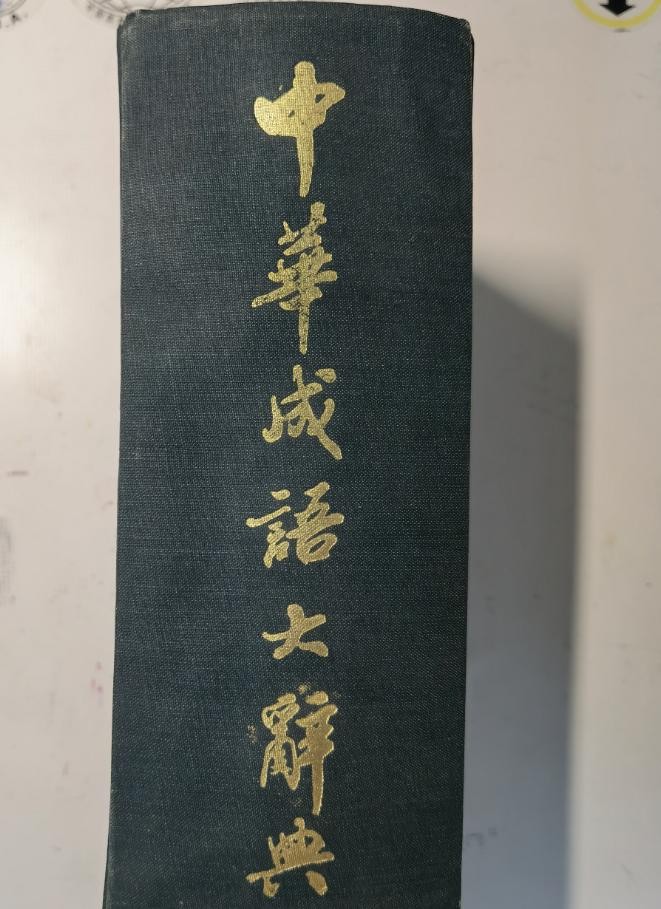 中華成語大辭典